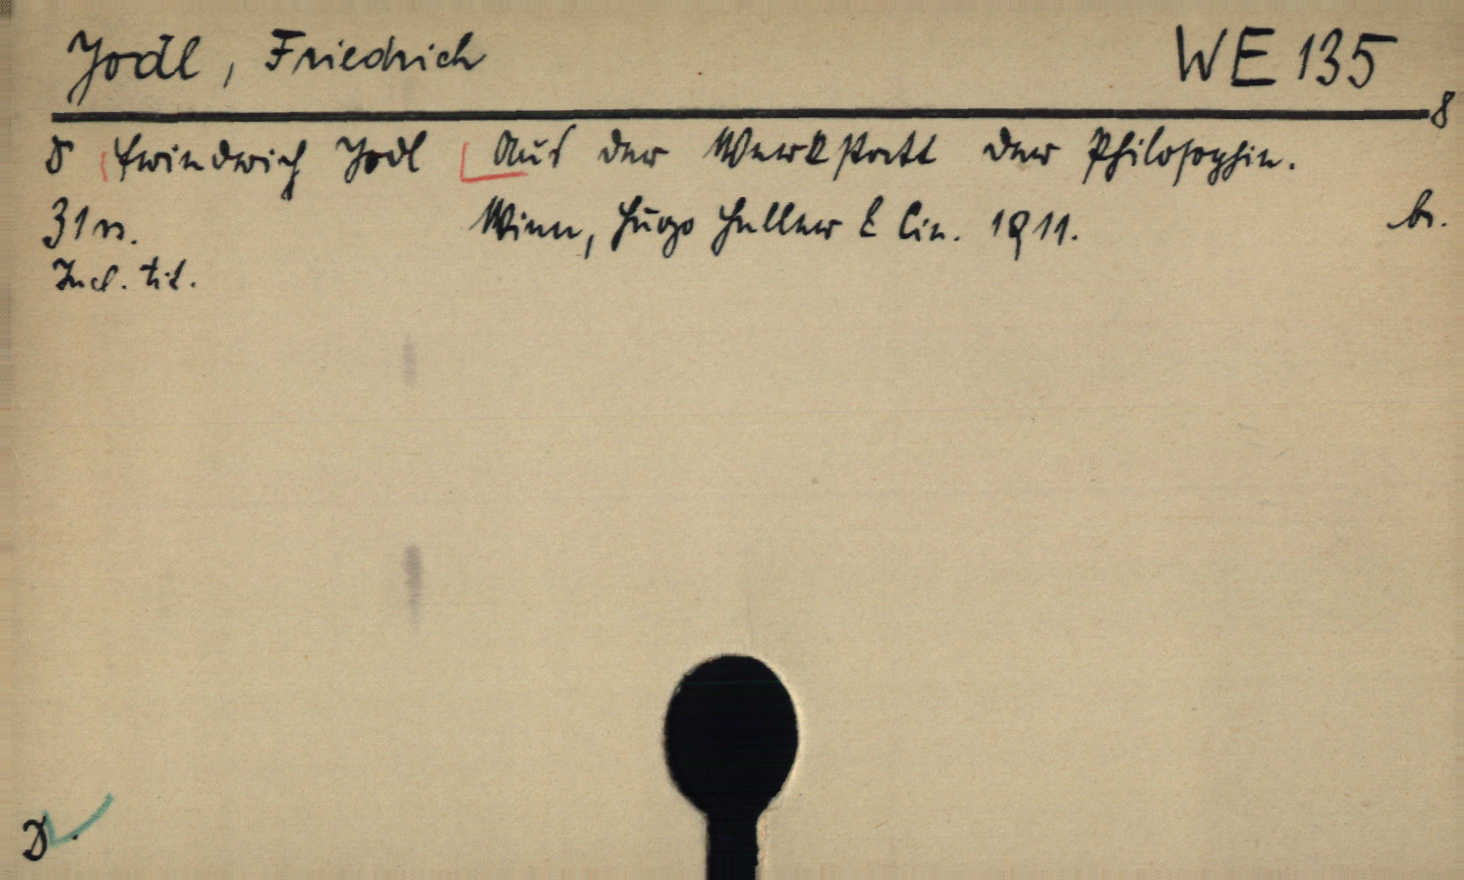 Jodl, Friedrich WE 135
8
8 Friedrich Jodl Aus der Werkstatt der Philosophie.
31 n. Wien, Hugo Heller & Cie. 1911. br.
Incl. tit.
D.